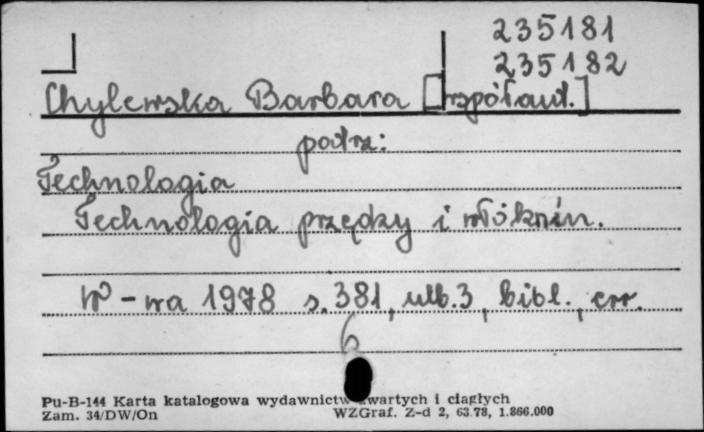 235181
235182
Chylewska Barbara [współaut.]
patrz:
Technologia
Technologia przędzy i włóknin.
W-wa 1978 s. 381, ulb.3, bibl., err.
6
Pu-B-144 Karta katalogowa wydawnictw zwartych i ciągłych
Zam. 34/DW/On WZGraf. Z-d 2, 63.78, 1.866.000